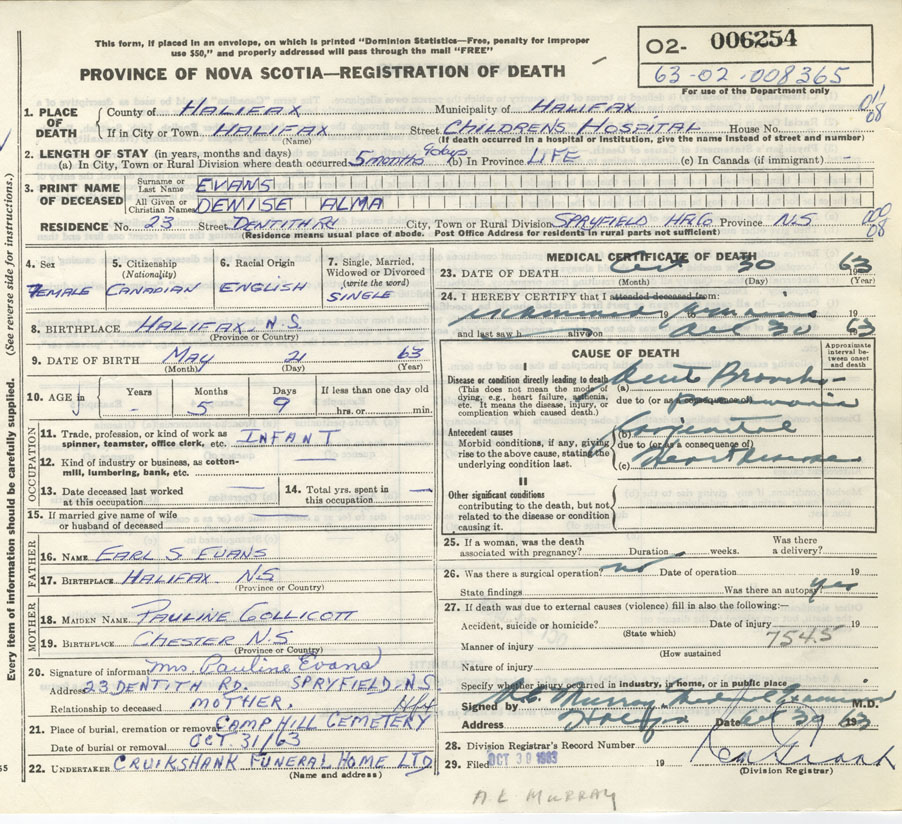 This form, if placed in an envelope, on which is printed "Dominion Statistics—Free, penalty for improper
use $50," and properly addressed will pass through the mail "FREE"
PROVINCE OF NOVA SCOTIA—REGISTRATION OF DEATH
O2- 006254
63-02-008365
For use of the Department only
1. PLACE OF DEATH County of HALIFAX Municipality of HALIFAX
If in City or Town HALIFAX Street CHILDRENS HOSPITAL House No.
(Name) (If death occurred in a hospital or institution, give the name instead of street and number)
2. LENGTH OF STAY (in years, months and days)
(a) In City, Town or Rural Division where death occurred 5 months 9 days (b) In Province LIFE (c) In Canada (if immigrant) -
3. PRINT NAME OF DECEASED Surname or Last Name EVANS
All Given or Christian Names DENISE ALMA
RESIDENCE No. 23 Street DENTITH Rd City, Town or Rural Division SPRYFIELD Province N.S
(Residence means usual place of abode. Post Office Address for residents in rural parts not sufficient)
4. Sex 5. Citizenship (Nationality) 6. Racial Origin 7. Single, Married, Widowed or Divorced (write the word)
FEMALE CANADIAN ENGLISH SINGLE
8. BIRTHPLACE HALIFAX. N.S.
(Province or Country)
9. DATE OF BIRTH MAY 21 63
(Month) (Day) (Year)
10. AGE in Years Months Days If less than one day old
- 5 9 hrs. or min.
OCCUPATION
11. Trade, profession, or kind of work as spinner, teamster, office clerk, etc. INFANT
12. Kind of industry or business, as cotton-mill, lumbering, bank, etc.
13. Date deceased last worked at this occupation
14. Total yrs. spent in this occupation
15. If married give name of wife or husband of deceased
FATHER
16. NAME EARL S EVANS
17. BIRTHPLACE HALIFAX NS
(Province or Country)
MOTHER
18. MAIDEN NAME PAULINE GOLLICOTT
19. BIRTHPLACE CHESTER N.S
(Province or Country)
20. Signature of informant Mrs. Pauline Evans
Address 23 DENTITH RD. SPRYFIELD, N.S.
Relationship to deceased MOTHER.
21. Place of burial, cremation or removal CAMP HILL CEMETERY
Date of burial or removal OCT 31/63
22. UNDERTAKER CRUIKSHANK FUNERAL HOME LTD
(Name and address)
MEDICAL CERTIFICATE OF DEATH
23. DATE OF DEATH Oct 30 63
(Month) (Day) (Year)
24. I HEREBY CERTIFY that I attended deceased from:
examined remains 19
and last saw h alive on Oct 30 63
CAUSE OF DEATH
Approximate interval between onset and death
I
Disease or condition directly leading to death (a) Acute Broncho-
(This does not mean the mode of dying, e.g., heart failure, asthenia, etc. It means the disease, injury, or complication which caused death.)
due to (or as a consequence of) pneumonia
Antecedent causes (b) Congenital
Morbid conditions, if any, giving rise to the above cause, stating the underlying condition last.
due to (or as a consequence of)
(c) Heart Disease
II
Other significant conditions
contributing to the death, but not related to the disease or condition causing it.
25. If a woman, was the death associated with pregnancy? Duration weeks. Was there a delivery?
26. Was there a surgical operation? no Date of operation 19
State findings Was there an autopsy? yes
27. If death was due to external causes (violence) fill in also the following:—
Accident, suicide or homicide? Date of injury 19
(State which)
Manner of injury 754.5
(How sustained
Nature of injury
Specify whether injury occurred in industry, in home, or in public place
Signed by Murray Medical Examiner M.D.
Address Halifax Date Oct 30 1963
28. Division Registrar's Record Number
29. Filed OCT 30 1963 19
(Division Registrar)
A.L MURRAY
(See reverse side for instructions.)
Every item of information should be carefully supplied.